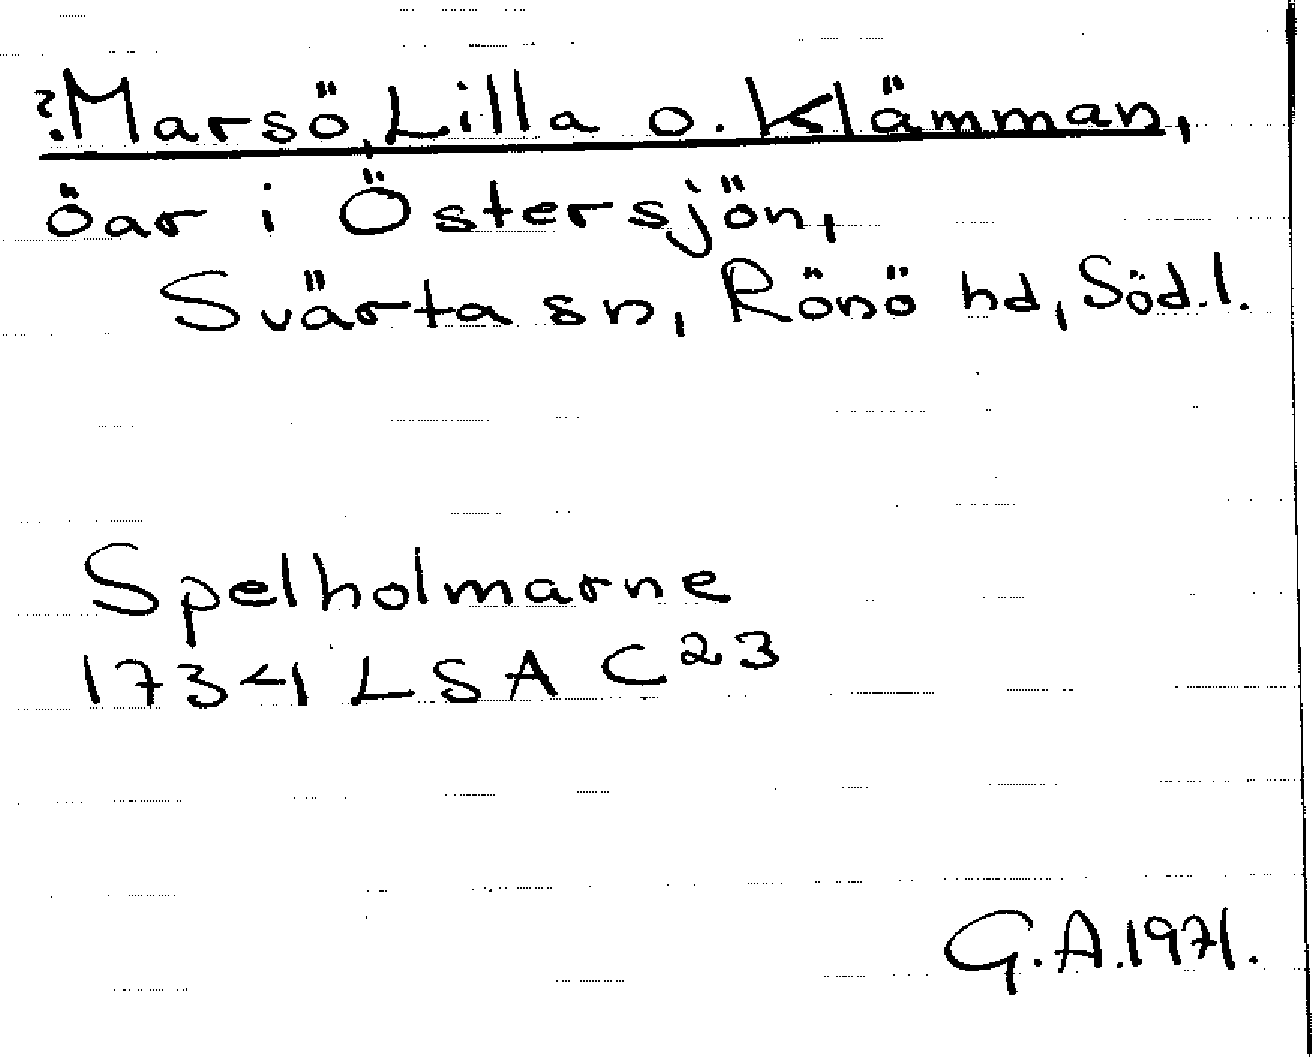 ?Marsö, Lilla o. Klämman,
öar i Östersjön,
Svärta sn, Rönö hd, Söd.l.
Spelholmarne
1734 LSA C23
G.A.1971.